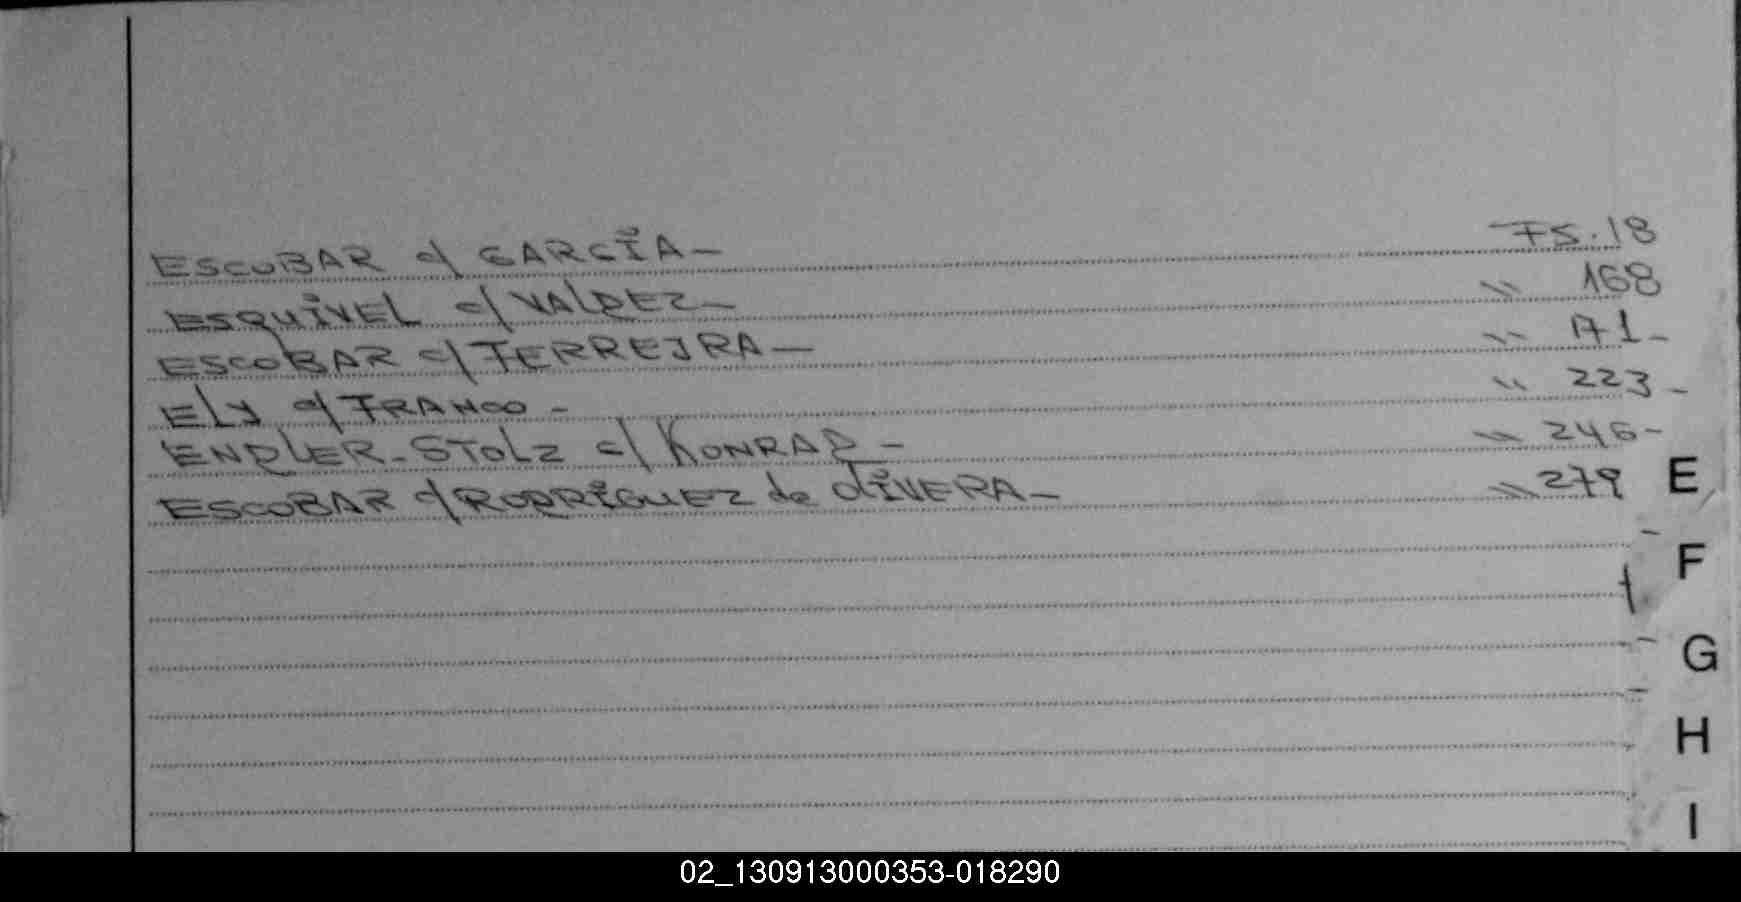 ESCOBAR c/ GARCÍA - FS. 18
ESQUIVEL c/ VALDEZ - " 168
ESCOBAR c/ FERREIRA - " 171 -
ELY c/ FRANCO - " 223 -
ENDLER-STOLZ c/ KONRAD - " 246 -
ESCOBAR c/ RODRÍGUEZ de OLIVERA - " 279
E
F
G
H
I
02_130913000353-018290